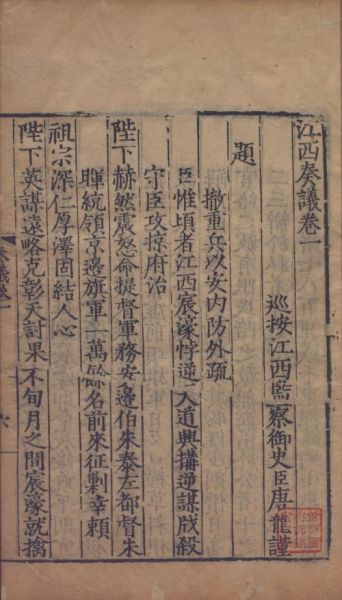 江西奏議卷一
巡按江西監察御史臣唐龍謹
題
撤重兵以安內防外疏
臣惟頃者江西宸濠悖逆入道興搆逆謀戕殺
守臣攻掠府治
陛下赫然震怒命提督軍務安邊伯朱泰左都督朱
暉統領京邊旗軍一萬餘名前來征剿幸賴
祖宗深仁厚澤固結人心
陛下英謀遠略克彰天討果不旬月之間宸濠就擒